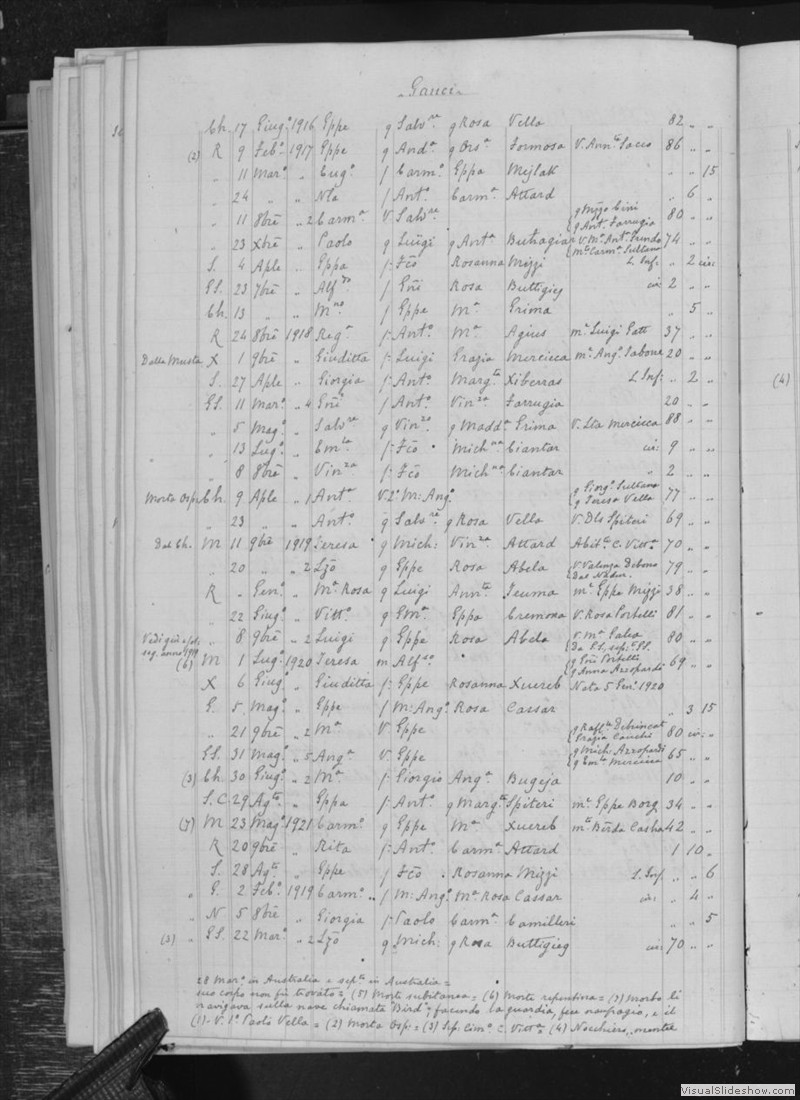 Gauci
Ch. 17 Giug.o 1916 Eppe g Salv.re g Rosa Vella 82 " "
(2) R 9 Feb.o 1917 Eppe g And.a g Ors.a Formosa V. Ann.ta Sacco 86 " "
" 11 Mar.o " Eug.o f Carm.o Eppa Mejlak " " 15
" 24 " " Nla f Ant.o Carm.a Attard " 6 "
" 11 8bre " 2 Carm.a V. Salv.re g Ant.a Farrugia 80 " "
" 23 Xbre " Paolo g Luigi g Ant.a Buttagiar 74 " "
S. 4 Aple " Eppa f. Fco Rosanna Mizzi L. Inf. " 2 cir:
GS. 23 7bre " Alf.do f Gni Rosa Buttigieg cir 2 "
Ch. 13 " " M.no f Eppe M.a Grima " 5 "
R 24 8bre 1918 Reg.a f. Ant.o M.a Agius m.e Luigi Gatt 37 " "
Dalla Musta X 1 9bre " Giuditta f. Luigi Grazia Mercieca m.e Ang.o Sabone 20 " "
S. 27 Aple " Giorgia f. Ant.o Marg.ta Xiberras L. Inf: " 2 "
GS. 11 Mar.o " 4 Gni f Ant.o Vin.za Farrugia 20 " "
" 5 Mag.o " Salv.re g Vin.zo g Madd.a Grima V. Lta Mercieca 88 " "
" 13 Lug.o " Em.la f. Fco Mich.na Ciantar cir: 9 "
" 8 8bre " Vin.za f. Fco Mich.na Ciantar " 2 "
Morta Osp. Ch. 9 Aple " 1 Ant.a V. 2.o M: Ang.o g Giorg.o Sultana g Teresa Vella 77 " "
" 23 " " Ant.a g Salv.re g Rosa Vella V. Dls Spiteri 69 " "
Dal Ch. M 11 9bre 1919 Teresa g Mich: Vin.za Attard Abit.te C. Vitt.a 70 " "
" 20 " " 2 Lzo g Eppe Rosa Abela V. Valenza Debono Dal Nadur 79 " "
R " Gen.o " M.a Rosa g Luigi Ann.ta Teuma m.e Eppe Mizzi 38 " "
" 22 Giug.o " Vitt.a g Em.a Eppa Cremona V. Rosa Portelli 81 " "
" 8 9bre " 2 Luigi g Eppe Rosa Abela 80 " "
seg. anno 1919
(6) M 1 Lug.o 1920 Teresa m Alf.so g Gni Portelli g Anna Azzopardi 69 " "
X 6 Giug.o " Giuditta f. Eppe Rosanna Xuereb Nata 5 Gen.o 1920
G. 5 Mag.o " Eppe f M: Ang.o Rosa Cassar " 3 15
" 21 9bre " 2 M.a V. Eppe g Raff.le Debrincat Grazia Cauchi 80 cir: "
GS. 31 Mag.o " 5 Ang.a V. Eppe g Mich. Azzopardi g Em.la Mercieca 65 " "
(3) Ch. 30 Giug.o " 2 M.a f. Giorgio Ang.a Bugeja 10 " "
S.C 29 Ag.to " Eppa f. Ant.o g Marg.ta Spiteri m.e Eppe Borg 34 " "
(7) M 23 Mag.o 1921 Carm.o g Eppe M.a Xuereb m.to Berda Casha 42 " "
R 20 9bre " Rita f. Ant.o Carm.a Attard 1 10 "
S. 28 Ag.to " Eppe f. Fco Rosanna Mizzi S. Inf. " " 6
" G. 2 Feb.o 1919 Carm.o f M: Ang.o M.a Rosa Cassar cir: " 4 "
" N 5 8bre " Giorgia f. Paolo Carm.a Camilleri " " 5
(3) " GS. 22 Mar.o " 2 Lzo g Mich: g Rosa Buttigieg cir: 70 " "
28 Mar.o in Australia e sep.to in Australia =
suo corpo non fu trovato = (5) Morte subitanea = (6) Morte repentina = (7) Morbo li
navigava sulla nave chiamata "Bird", facendo la guardia, fece naufragio, e il
(1) - V. 1.o Paolo Vella = (2) Morta Osp: = (3) Sep. Cim.o C. Vitt.a = (4) Nocchiero, mentre
(4)
VisualSlideshow.com